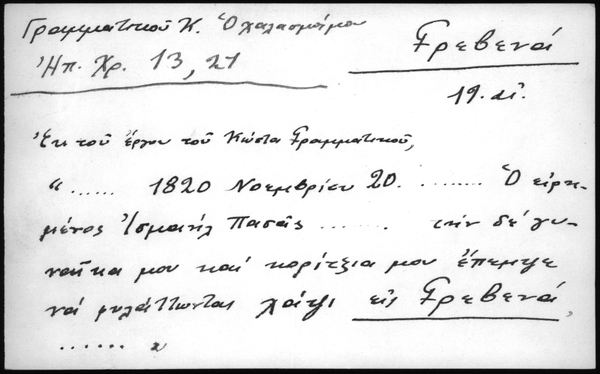 Γραμματικοῦ Κ. Ὁ χαλασμός μου
Γρεβενά
Ἠπ. Χρ. 13, 21
19. αἰ.
Ἐκ τοῦ ἔργου τοῦ Κώστα Γραμματικοῦ,
“ ...... 1820 Νοεμβρίου 20. ........ Ὁ εἰρη-
μένος Ἰσμαήλ Πασᾶς ....... τήν δέ γυ-
ναῖκα μου καί κορίτζια μου ἔπεμψε
νά φυλάττωνται χάψι εἰς Γρεβενά,
...... "